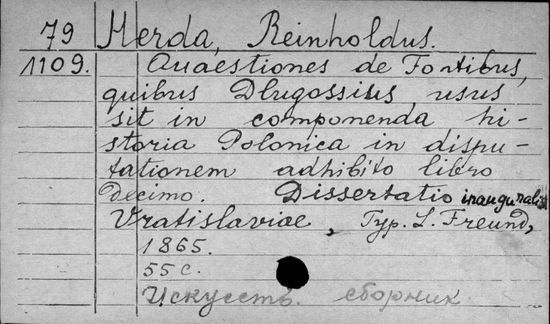 79 Herda, Reinholdus.
1109. Quaestiones de Fontibus,
quibus Dlugossius usus
sit in componenda hi-
storia Polonica in dispu-
tationem adhibito libro
decimo. Dissertatio inauguralis
Vratislaviae, Typ. L. Freund,
1865.
55 с.
Искусств. сборник